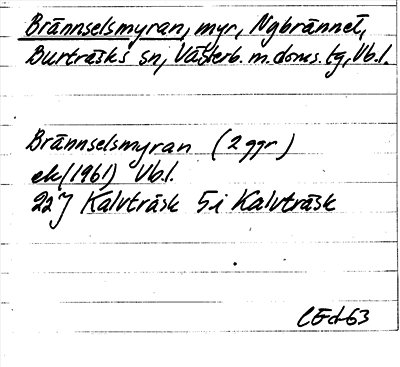 Brännselsmyran, myr, Nybrännet,
Burträsks sn, Västerb. m. doms. tg, Vb. l.
Brännselsmyran (2 ggr)
ek (1961) Vb. l.
22J Kalvträsk 5i Kalvträsk